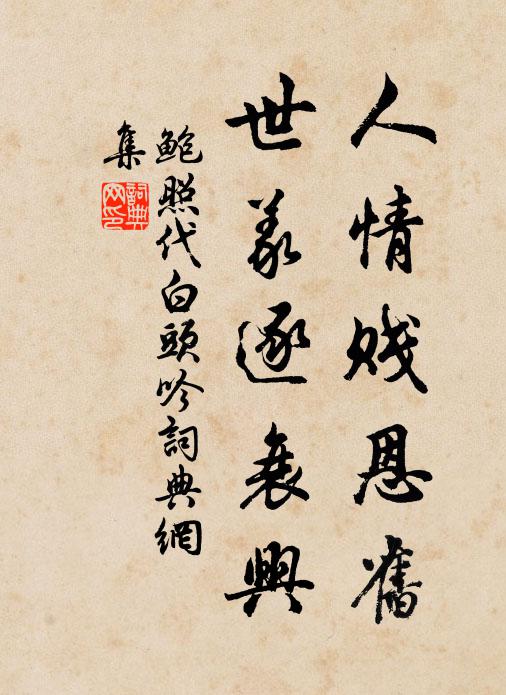 人情賤恩舊
世義逐衰興
鮑照代白頭吟詞典網
集
詞典
网印